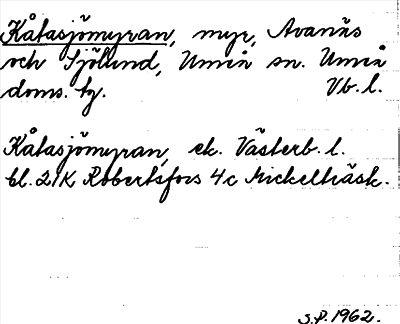 Kåtasjömyran, myr, Avanäs
och Sjölund, Umeå sn. Umeå
doms. hg. Vb. l.
Kåtasjömyran, ek. Västerb. l.
bl. 21K Robertsfors 4c Mickelträsk.
S.P. 1962.